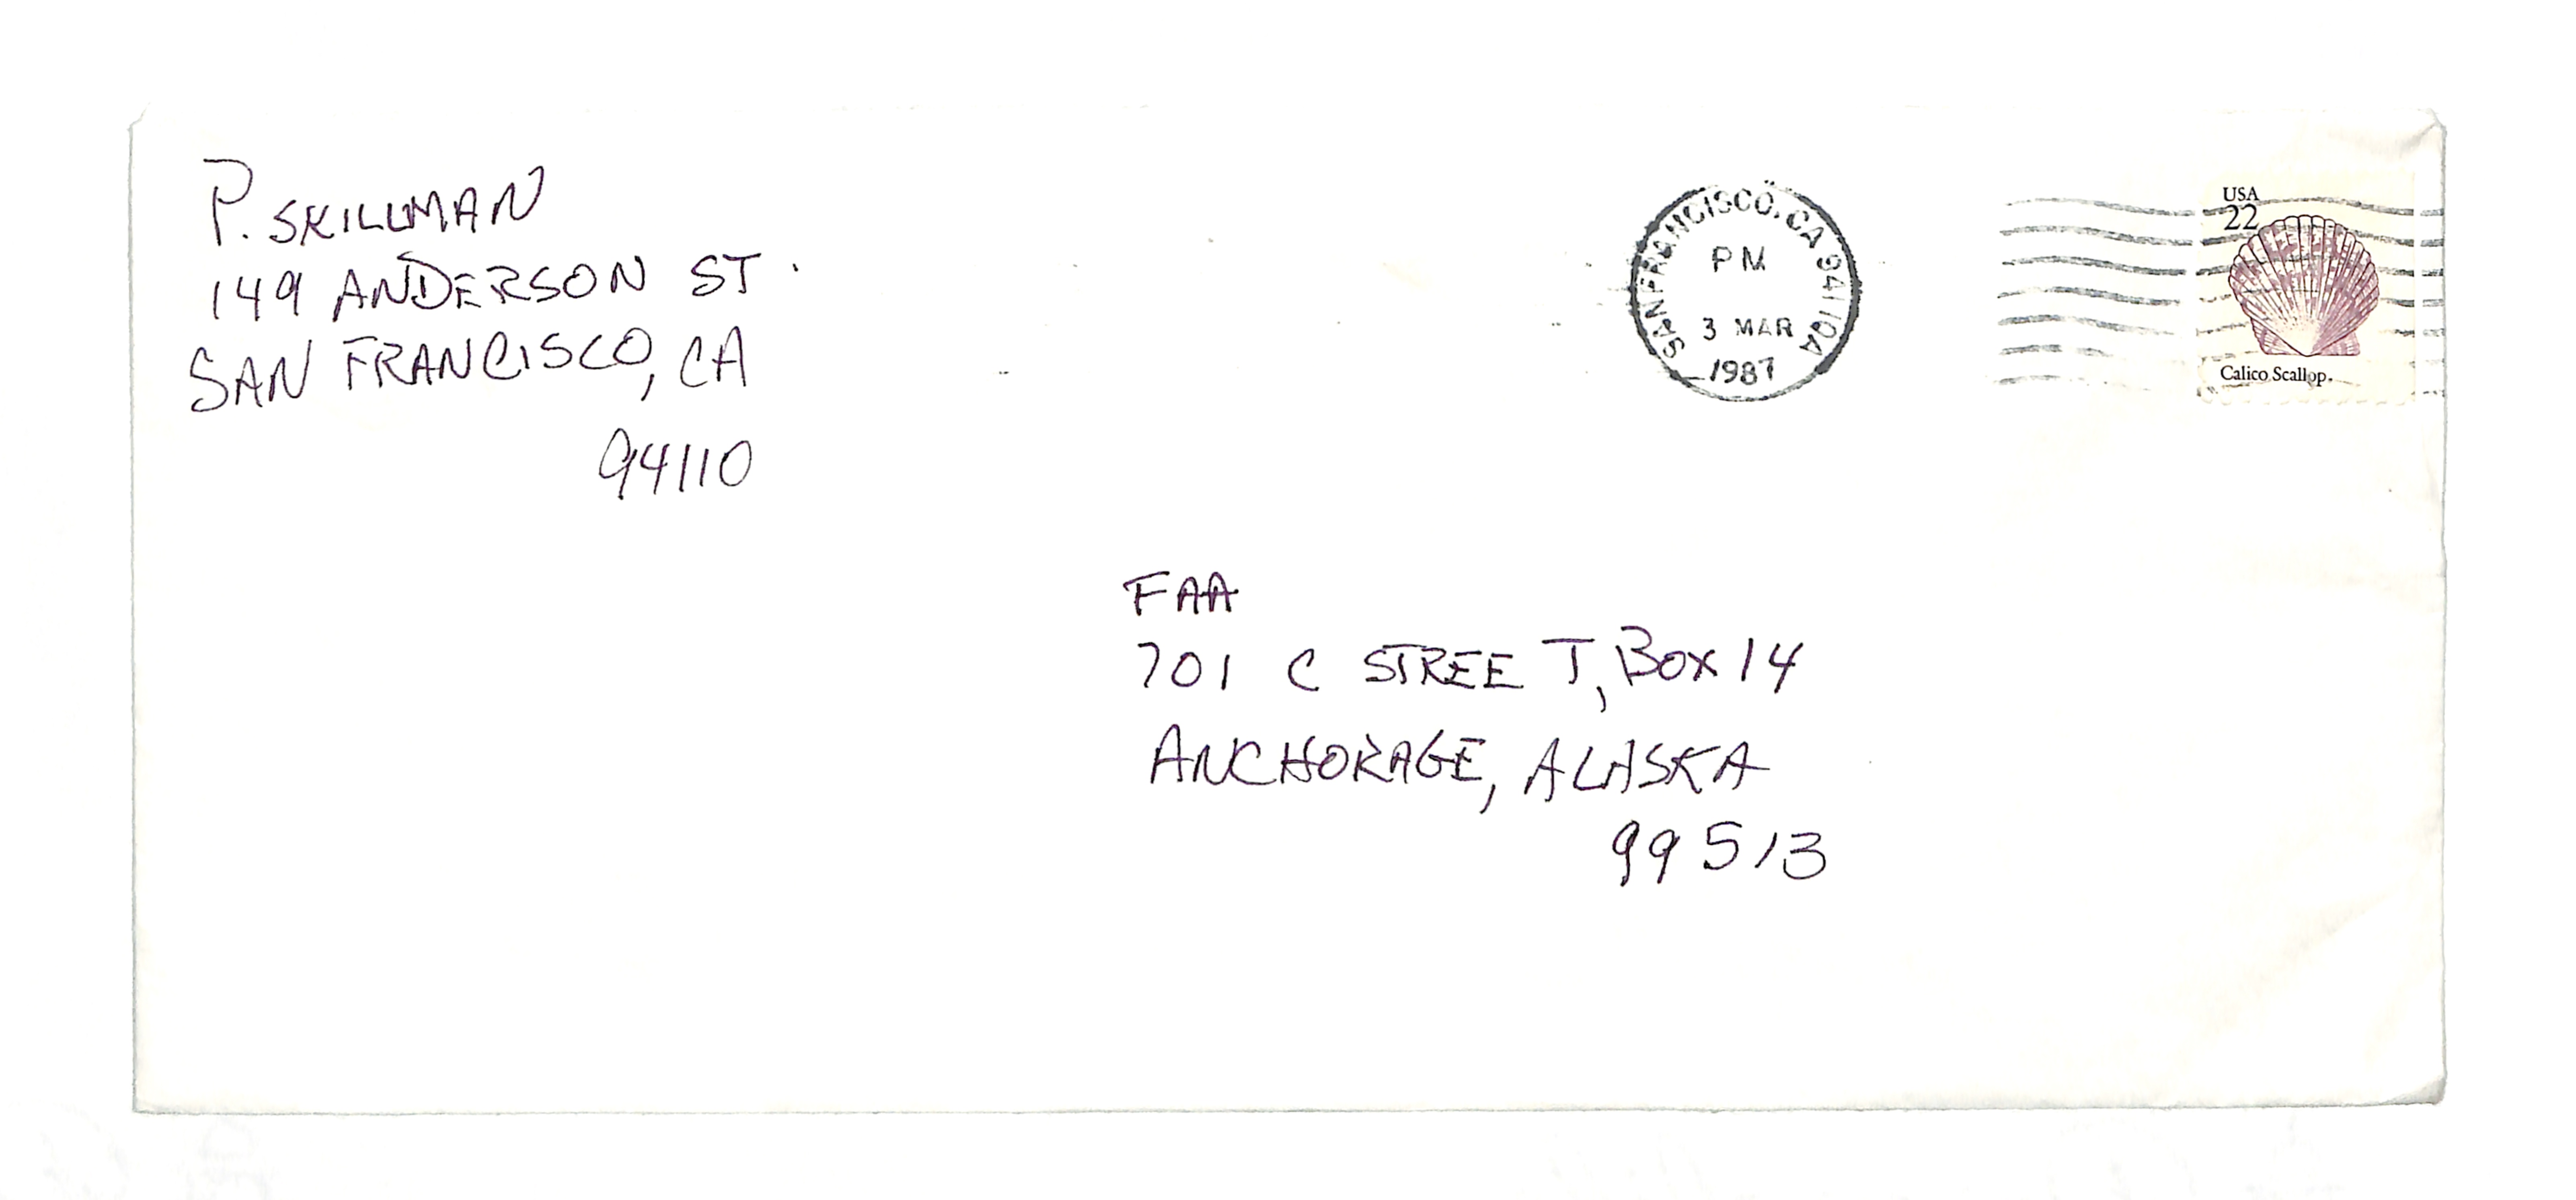 P. SKILLMAN
149 ANDERSON ST.
SAN FRANCISCO, CA
94110
SAN FRANCISCO, CA 941 10A
PM
3 MAR
1987
USA
22
Calico Scallop
FAA
701 C STREET, BOX 14
ANCHORAGE, ALASKA
99513